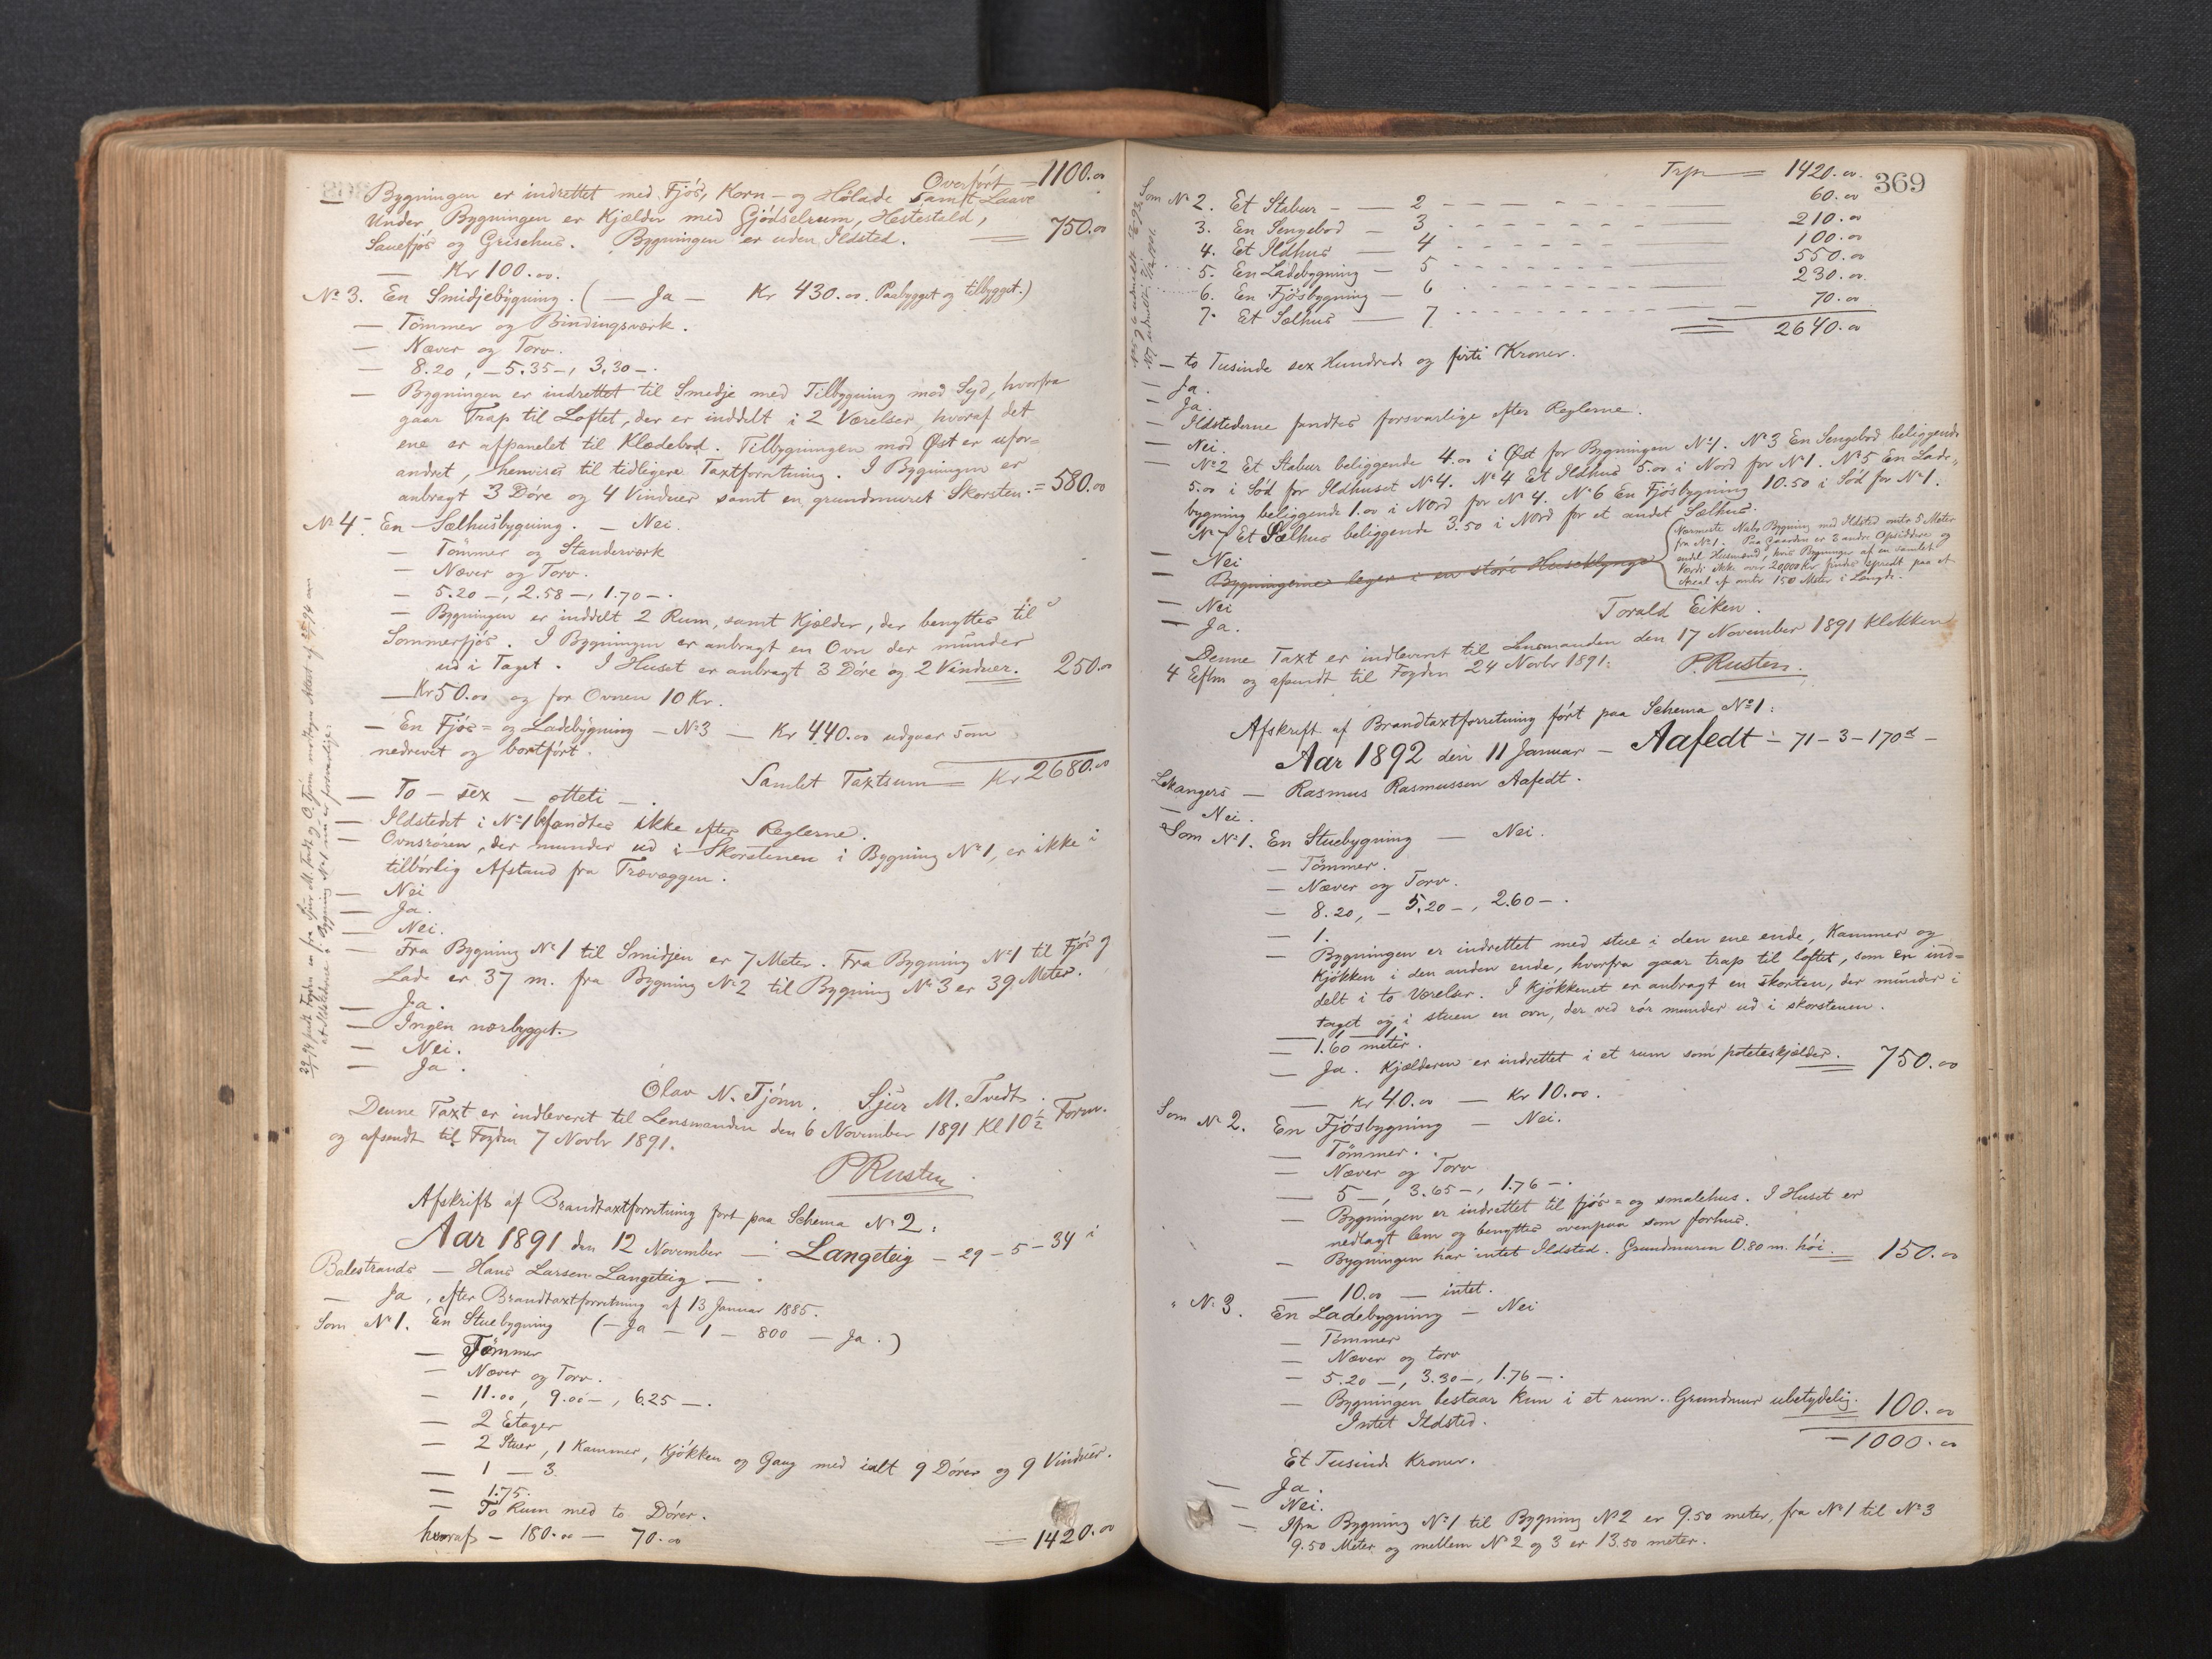 Overført = 1100.00
Bygningen er indrettet med Fjøs, Korn- og Hølade samt Laave
Under Bygningen er Kjælder med Gjødselrum, Hestestald,
Sauefjøs og Grisehus. Bygningen er uden Ildsted. = 750.00
— Kr 100.00.
No 3. En Smidjebygning. ( — Ja — Kr 430.00. Paabygget og tilbygget.)
— Tømmer og Bindingsværk.
— Næver og Torv.
— 8.20, — 5.35 —, 3.30 —.
— Bygningen er indrettet til Smedje med Tilbygning mod Syd, hvorfra
gaar Trap til Loftet, der er inddelt i 2 Værelser, hvoraf det
ene er afpanelet til Klædebod. Tilbygningen mod Øst er ufor=
andret, henvises til tidligere Taxtforretning. I Bygningen er
anbragt 3 Døre og 4 Vinduer samt en grundmuret Skorsten. = 580.00
No 4. En Sælhusbygning. — Nei.
— Tømmer og Standerværk
— Næver og Torv.
— 5.20 —, 2.58 —, 1.70 —.
— Bygningen er inddelt 2 Rum, samt Kjælder, der benyttes til
Sommerfjøs. I Bygningen er anbragt en Ovn der munder
ud i Taget. I Huset er anbragt 3 Døre og 2 Vinduer. 250.00
— Kr 50.00 og for Ovnen 10 Kr.
— En Fjøs= og Ladebygning — No 3 — Kr 440.00 udgaar som
nedrevet og bortført.
Samlet Taxtsum = Kr 2680.00
— To — sex — otteti —.
— Ildstedet i No 1 fandtes ikke efter Reglerne.
— Ovnsrøren, der munder ud i Skorstenen i Bygning No 1, er ikke i
tilbørlig Afstand fra Trævæggen.
— Nei
— Ja.
— Nei.
— Fra Bygning No 1 til Smidjen er 7 Meter. Fra Bygning No 1 til Fjøs og
Lade er 37 m. fra Bygning No 2 til Bygning No 3 er 39 Meter.
— Ja.
— Ingen nærbygget.
— Nei.
— Ja.
Olav N. Tjønn. Sjur M. Tvedt.
Denne Taxt er indleveret til Lensmanden den 6 November 1891 Kl 10½ Form.
og afsendt til Fogden 7 Novbr 1891.
P Rusten
Afskrift af Brandtaxtforretning ført paa Schema No 2:
Aar 1891 den 12 November — Langeteig — 29 — 5 — 34 i
Balestrands — Hans Larsen Langeteig —.
— Ja, efter Brandtaxtforretning af 13 Januar 1885.
Som No 1. En Stuebygning ( — Ja — 1 — 800 — Ja.)
— Tømmer
— Næver og Torv.
— 11.00, 9.00 —, 6.25 —.
— 2 Etager
— 2 Stuer, 1 Kammer, Kjøkken og Gang med ialt 9 Dører og 9 Vinduer.
— 1 — 3.
— 1.75.
— To Rum med to Dører.
hvoraf — 180.00 — 70.00 = 1420.00
369
Trpr = 1420.00
Som No 2. Et Stabur — 2 — 60.00
3. En Sengebod — 3 — 210.00
4. Et Ildhus — 4 — 100.00
5. En Ladebygning — 5 — 550.00
6. En Fjøsbygning — 6 — 230.00
7. Et Sælhus — 7 — 70.00
= 2640.00
— to Tusinde sex Hundrede og firti Kroner.
— Ja.
— Ja.
— Ildstederne fandtes forsvarlige efter Reglerne.
— Nei.
— No 2 Et Stabur beliggende 4.00 i Øst for Bygningen No 1. No 3 En Sengebod beliggende
5.00 i Sød for Ildhuset No 4. No 4 Et Ildhus 5.00 i Nord for No 1. No 5 En Lade=
bygning beliggende 1.00 i Nord for No 4. No 6 En Fjøsbygning 10.50 i Sød for No 1.
No 7 Et Sælhus beliggende 3.50 i Nord for et andet Sælhus.
— Nei
Bygningerne leger i en større Huseklynge
Nærmeste Nabo Bygning med Ildsted omtr 5 Meter
fra No 1. Paa Gaarden er 3 andre Opsiddere og
endel Husmænd, hvis Bygninger af en samlet
Værdi ikke over 20,000 Kr findes spredt paa et
Areal af omtr 150 Meter i Længde.
— Nei
— Ja.
Torald Eiken.
Denne Taxt er indleveret til Lensmanden den 17 November 1891 Klokken
4 Eftm og afsendt til Fogden 24 Novbr 1891.
P. Rusten.
Afskrift af Brandtaxtforretning ført paa Schema No 1:
Aar 1892 den 11 Januar — Aafedt — 71 — 3 — 170 —
Lekangers — Rasmus Rasmussen Aafedt.
— Nei.
Som No 1. En Stuebygning — Nei.
— Tømmer.
— Næver og Torv.
— 8.20, — 5.20 —, 2.60 —.
— 1.
— Bygningen er indrettet med stue i den ene ende, Kammer og
Kjøkken i den anden ende, hvorfra gaar trap til loftet, som er ind=
delt i to Værelser. I Kjøkkenet er anbragt en skorsten, der munder i
taget og i stuen en ovn, der ved rør munder ud i skorstenen.
— 1 — 1.
— 1.60 meter.
— Ja. Kjælderen er indrettet i et rum som poteteskjælder. = 750.00
— Kr 40.00 — Kr 10.00.
Som No 2. En Fjøsbygning — Nei.
— Tømmer.
— Næver og Torv
— 5 —, 3.65 —, 1.76 —.
— Bygningen er indrettet til fjøs= og smalehus. I Huset er
nedlagt lem og benyttes ovenpaa som forhus.
— Bygningen har intet Ildsted. Grundmuren 0.80 m. høi. = 150.00
— 10.00 — intet.
" No 3. En Ladebygning — Nei
— Tømmer
— Næver og torv
— 5.20 —, 3.30 —, 1.76 —.
— Bygningen bestaar kun i et rum. Grundmur ubetydelig. 100.00
Intet Ildsted.
— 1000.00
Et Tusinde Kroner.
— Ja.
— Nei.
— Fra Bygning No 1 til Bygning No 2 er 9.50 meter, fra No 1 til No 3
9.50 Meter og mellem No 2 og 3 er 13.50 meter.